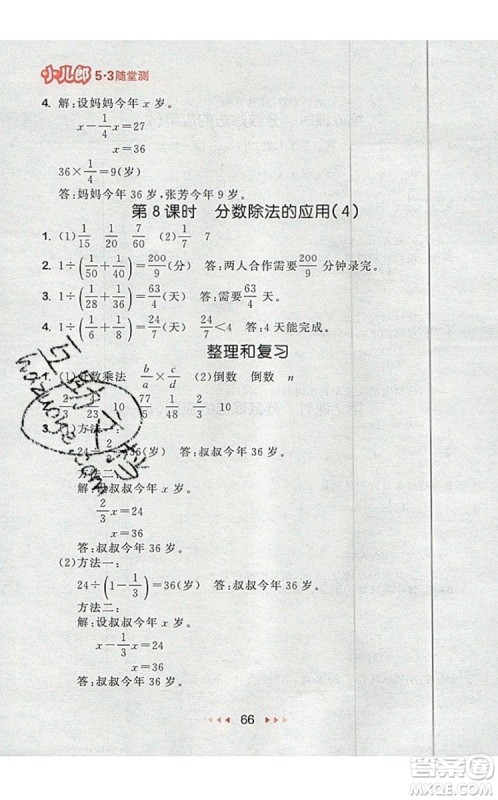 小儿郎 5·3随堂测
4. 解:设妈妈今年 x 岁。
x-1/4x=27
x=36
36×1/4=9(岁)
答:妈妈今年 36 岁,张芳今年 9 岁。
第 8 课时 分数除法的应用(4)
1. (1)1/15 1/20 7/60 (2)1/7 7
2. 1÷(1/50+1/40)=200/9(分) 答:两人合作需要200/9分钟录完。
3. 1÷(1/28+1/36)=63/4(天) 答:需要63/4天。
4. 1÷(1/6+1/8)=24/7(天) 24/7<4 答:4天能完成。
整理和复习
1. (1)分数乘法 b/a×c/d (2)倒数 倒数 n
1/2 1/23 10 77/15 1/48 3/2 10
3. (1)方法一:
24÷2/3=36(岁) 答:叔叔今年 36 岁。
方法二:
解:设叔叔今年 x 岁。
2/3x=24
x=36
答:叔叔今年 36 岁。
(2)方法一:
24÷(1-1/3)=36(岁) 答:叔叔今年 36 岁。
方法二:
解:设叔叔今年 x 岁。
x-1/3x=24
x=36
答:叔叔今年 36 岁。
66
答案圈
MXQE.COM